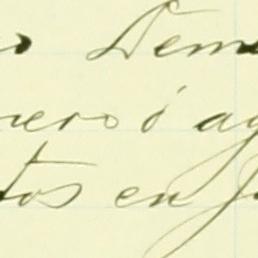 o Dem
nero ó ag
tos en